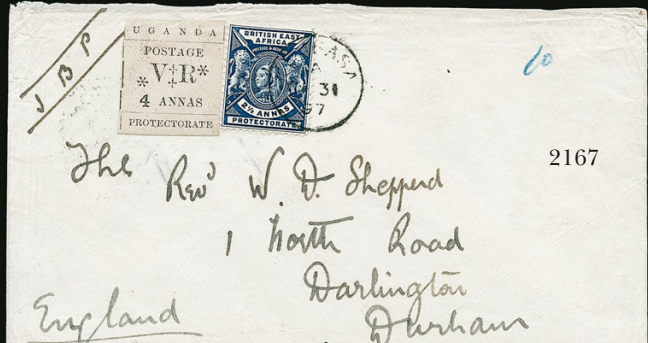 J B P
UGANDA
POSTAGE
* V‡R *
4 ANNAS
PROTECTORATE
BRITISH EAST
AFRICA
POSTAGE & REVENUE
2½ ANNAS
PROTECTORATE
31
97
10
2167
The Revd W. D. Shepperd
1 North Road
Darlington
Durham
England